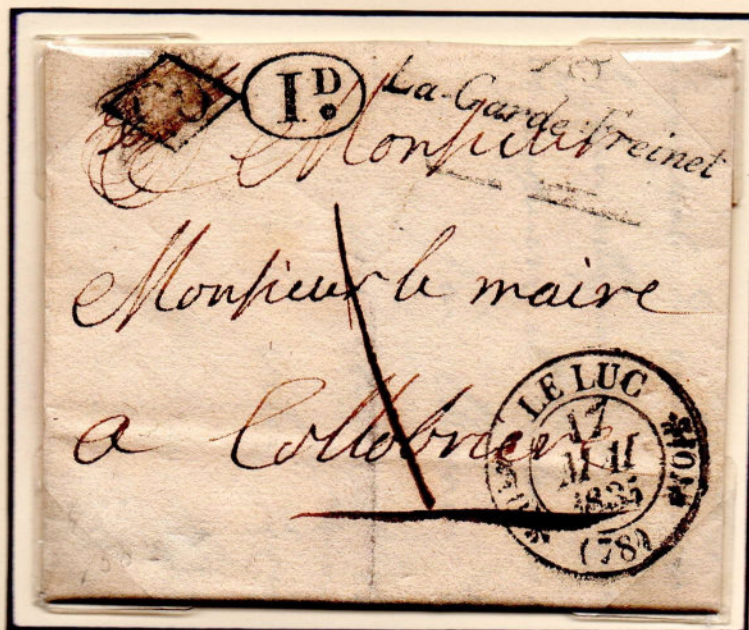 1D
18
La-Garde-Freinet
Monsieur
Monsieur le maire
a Collobriere
LE LUC
17
MAI
1835
(78)